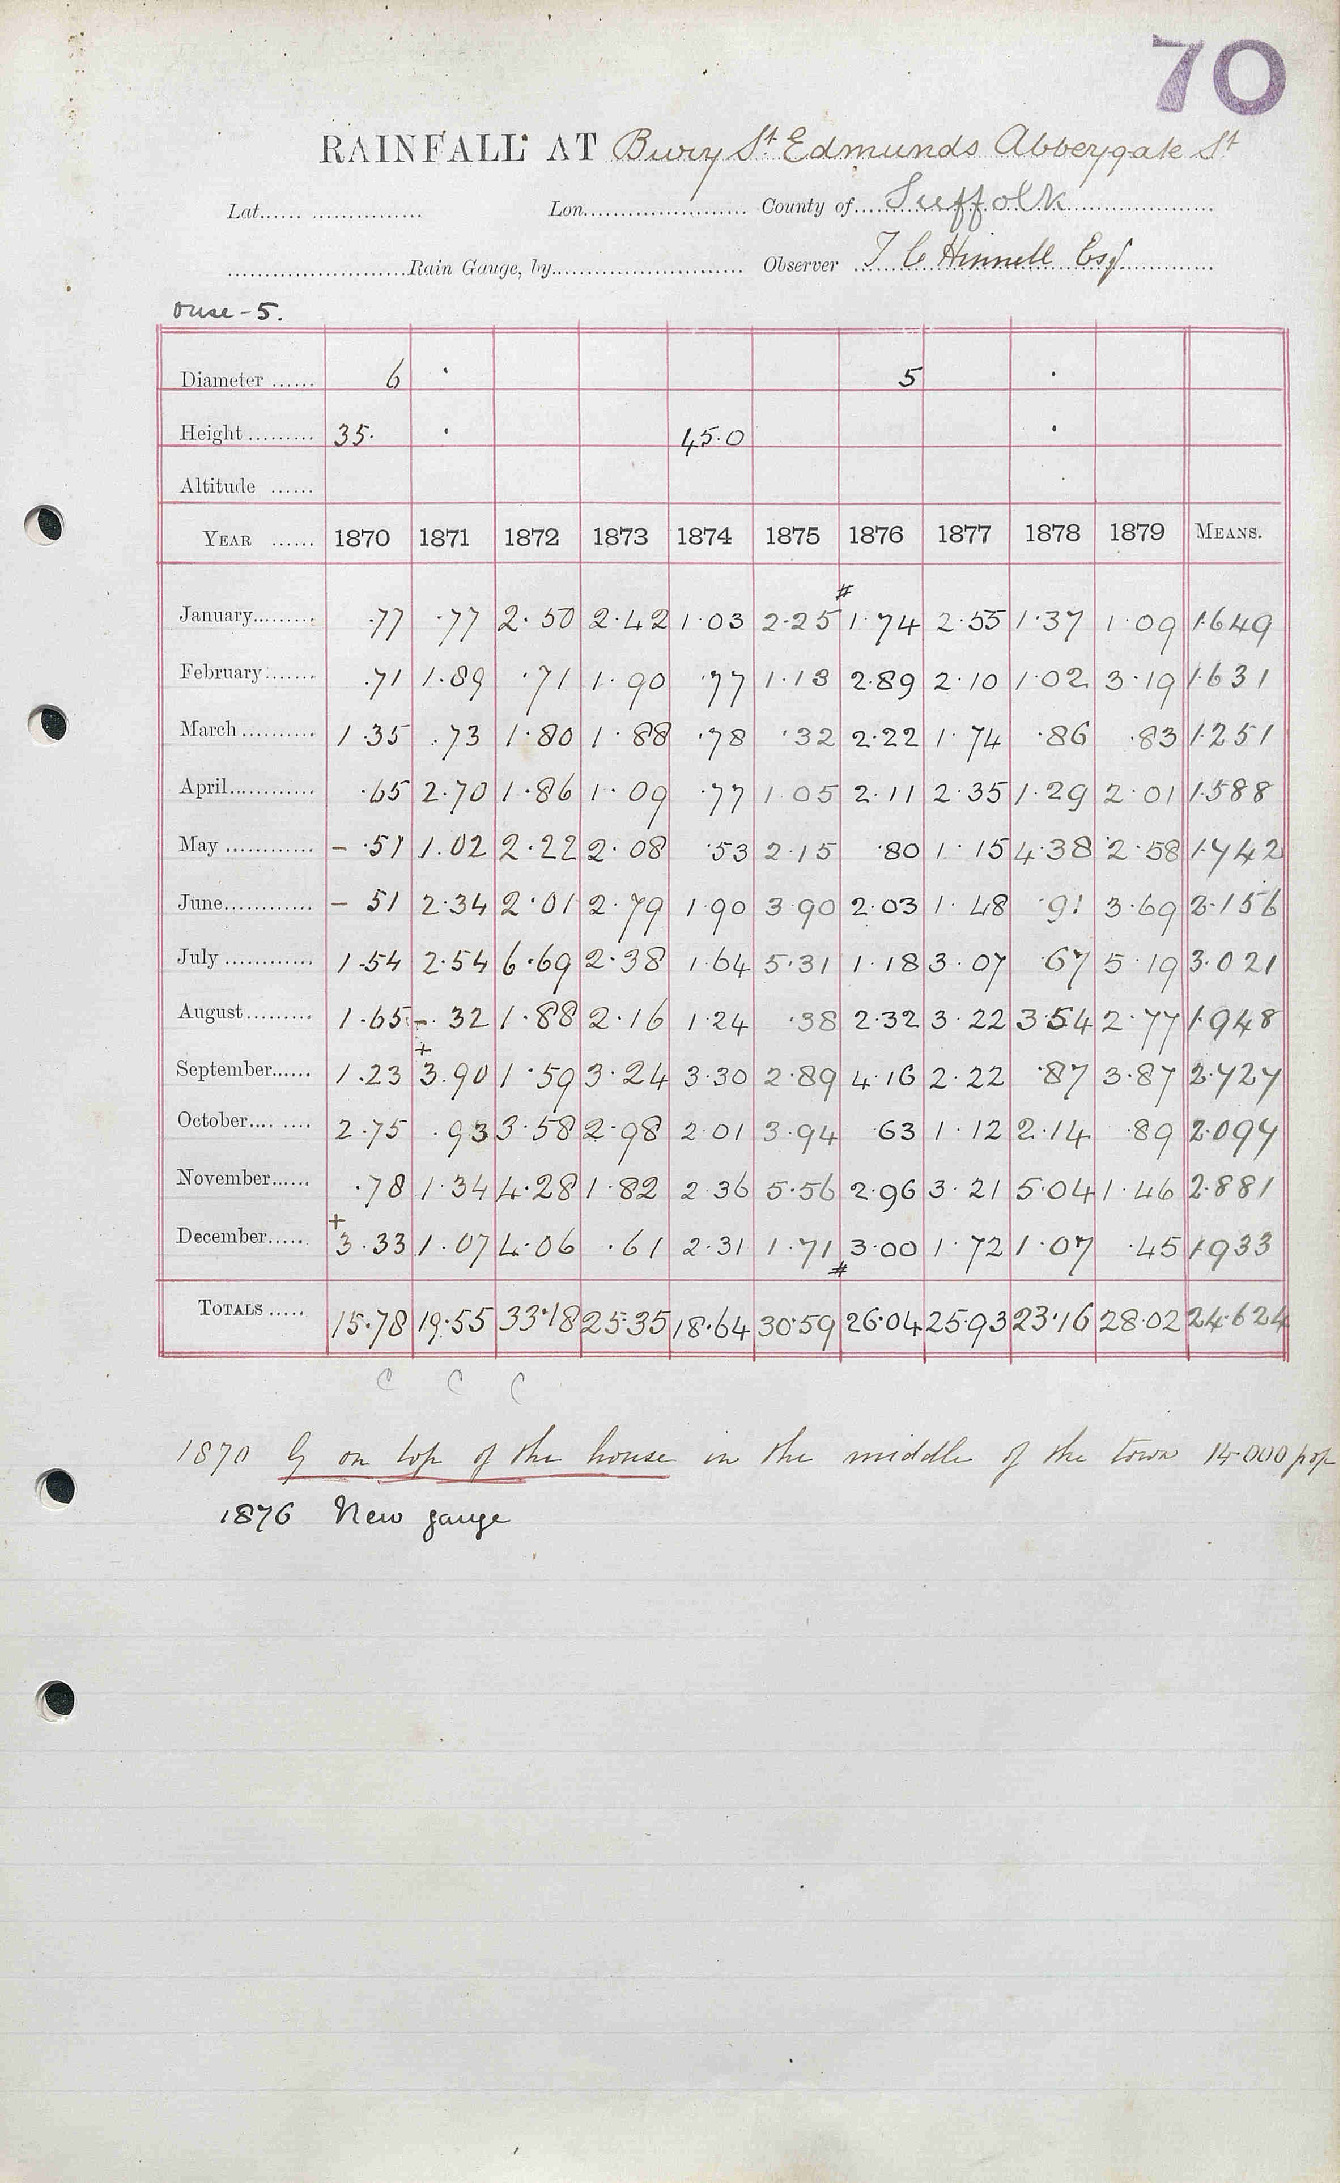 70
RAINFALL AT Bury St Edmunds Abbeygate St
Lat. Lon. County of Suffolk
Rain Gauge, by Observer T C Hinnell Esq
Ouse - 5.
Diameter 6 5
Height 35. 45.0
Altitude
YEAR 1870 1871 1872 1873 1874 1875 1876 1877 1878 1879 MEANS.
#
January .77 .77 2.50 2.42 1.03 2.25 1.74 2.55 1.37 1.09 1.649
February .71 1.89 .71 1.90 .77 1.13 2.89 2.10 1.02 3.19 1.631
March 1.35 .73 1.80 1.88 .78 .32 2.22 1.74 .86 .83 1.251
April .65 2.70 1.86 1.09 .77 1.05 2.11 2.35 1.29 2.01 1.588
May - .51 1.02 2.22 2.08 .53 2.15 .80 1.15 4.38 2.58 1.742
June - 51 2.34 2.01 2.79 1.90 3.90 2.03 1.48 .91 3.69 2.156
July 1.54 2.54 6.69 2.38 1.64 5.31 1.18 3.07 .67 5.19 3.021
August 1.65 - .32 1.88 2.16 1.24 .38 2.32 3.22 3.54 2.77 1.948
+
September 1.23 3.90 1.59 3.24 3.30 2.89 4.16 2.22 .87 3.87 2.727
October 2.75 .93 3.58 2.98 2.01 3.94 .63 1.12 2.14 .89 2.097
November .78 1.34 4.28 1.82 2.36 5.56 2.96 3.21 5.04 1.46 2.881
+
December 3.33 1.07 4.06 .61 2.31 1.71 3.00 1.72 1.07 .45 1.933
#
TOTALS 15.78 19.55 33.18 25.35 18.64 30.59 26.04 25.93 23.16 28.02 24.624
C C C
1870 G on top of the house in the middle of the town 14.000 pop
1876 New gauge